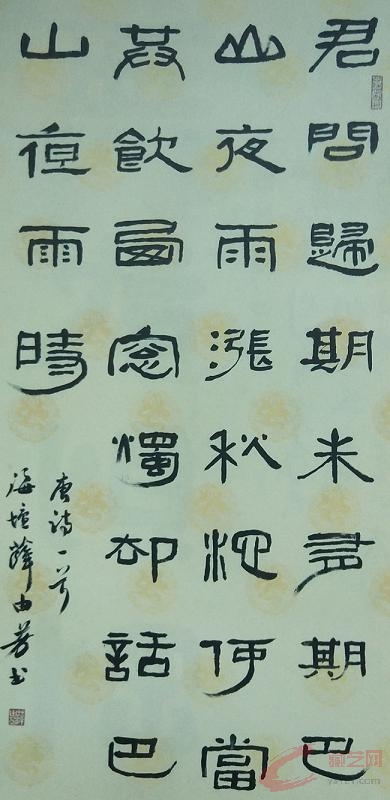 君問歸期未有期巴
山夜雨漲秋池何當
共飲西窗燭却話巴
山夜雨時
唐诗一首
海壇薛由芳书